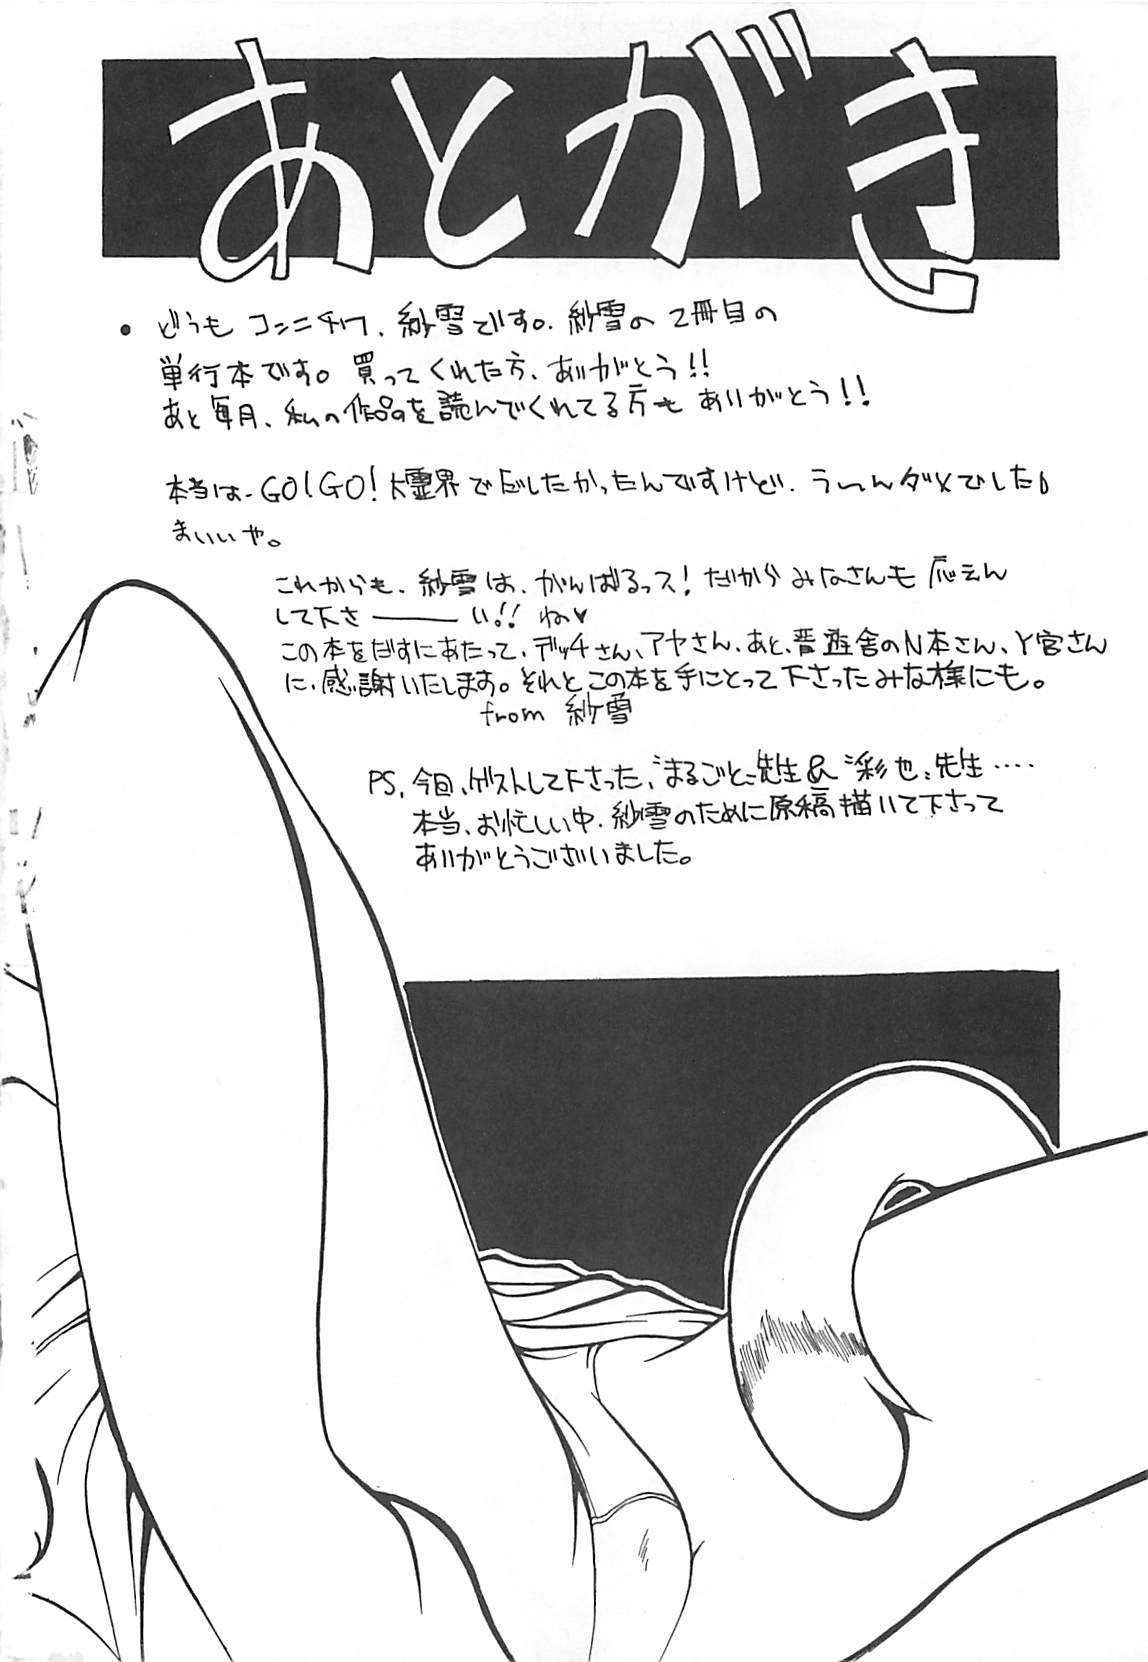 あとがき
• どうもコンニチワ、紗雪です。紗雪の2冊目の
単行本です。買ってくれた方、ありがとう!!
あと毎月、私の作品を読んでくれてる方もありがとう!!
本当は、GO!GO!大霊界でだしたかったんですけど、うーんダメでした
まいいや。
これからも、紗雪は、がんばるっス!だからみなさんも応えん
して下さ――い!!ね♥
この本をだすにあたって、デッチさん、アヤさん、あと、晋遊舎のN本さん、Y宮さん
に、感謝いたします。それとこの本を手にとって下さったみな様にも。
from 紗雪
PS, 今回、ゲストして下さった、"まるごと"先生&"彩也"先生‥‥
本当、お忙しい中、紗雪のために原稿描いて下さって
ありがとうございました。